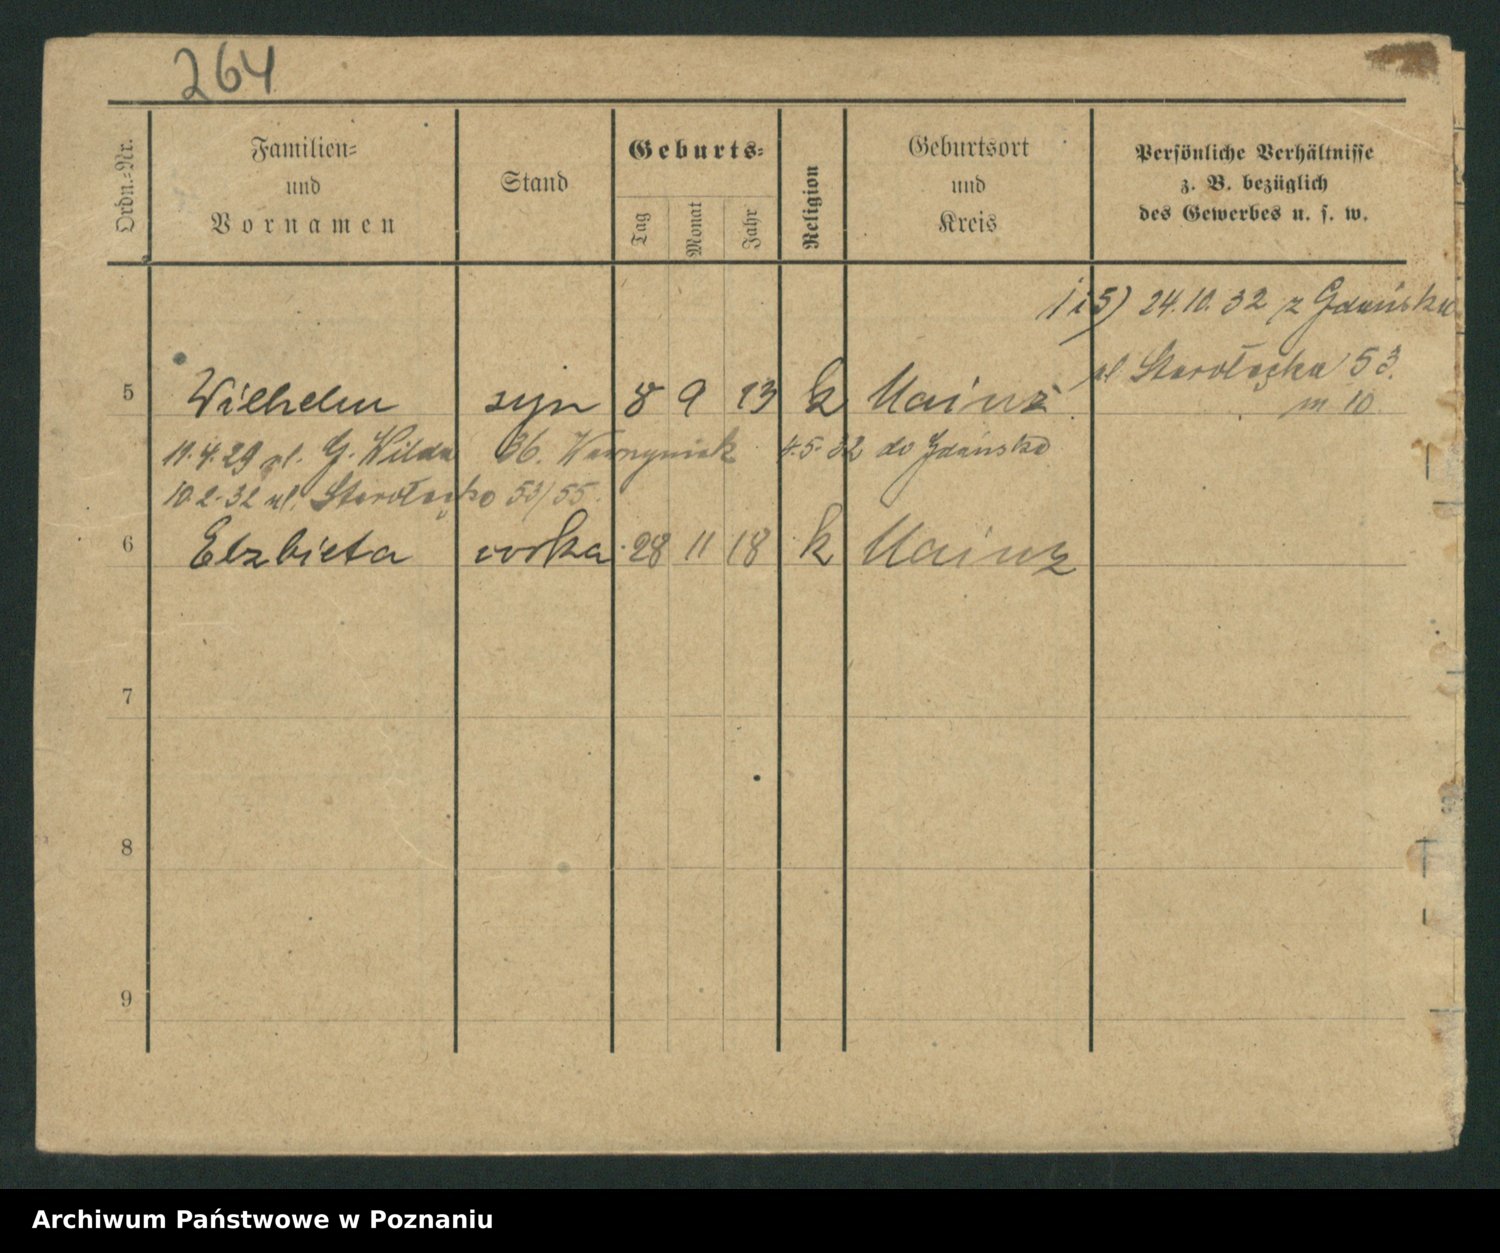 264
Ordn.-Nr.
Familien-
und
Vornamen
Stand
Geburts-
Tag
Monat
Jahr
Religion
Geburtsort
und
Kreis
Persönliche Verhältnisse
z. B. bezüglich
des Gewerbes u. s. w.
1 i 5) 24.10.32 z Gdańska
ul Starołęcka 53.
m 10.
5 Wilhelm syn 8 9 13 k Mainz
11.4.29 ul. G. Wilda 36. Wawrzyniak 4.5.32 do Gdańska
10.2.32 ul. Starołęcka 53/55.
6 Elzbieta córka 28 11 18 k Mainz
7
8
9
Archiwum Państwowe w Poznaniu